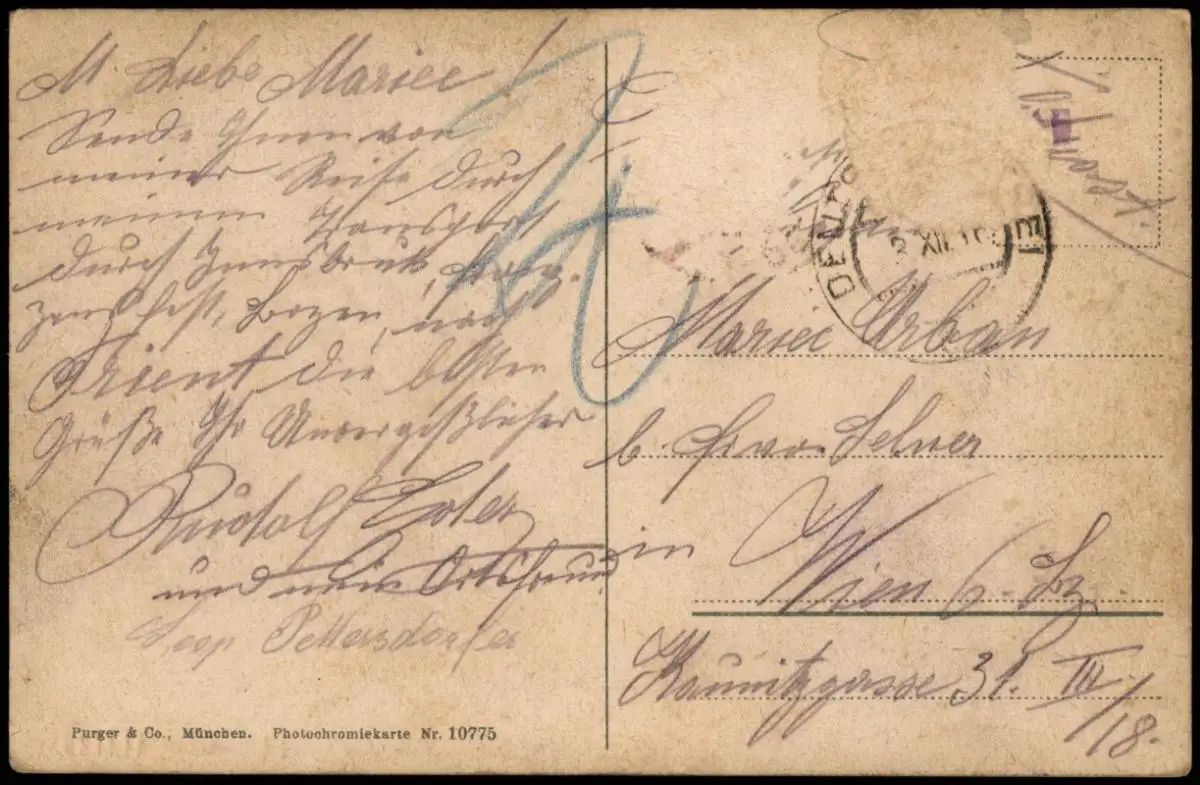 M. Liebe Mariec!
Sende Ihnen von
meiner Reise durch
meinen Transport
durch Innsbruk, Franz
zensfest, Bozen, nach
Trient die besten
Grüße Ihr Unvergeßlicher
Rudolf
und mein Ortsfreund
Leop Pettersdorfer
Purger & Co., München. Photochromiekarte Nr. 10775
XII
Mariec Urban
b. Selner
in Wien 6. Bz
Kaunitzgasse 31. III/18.